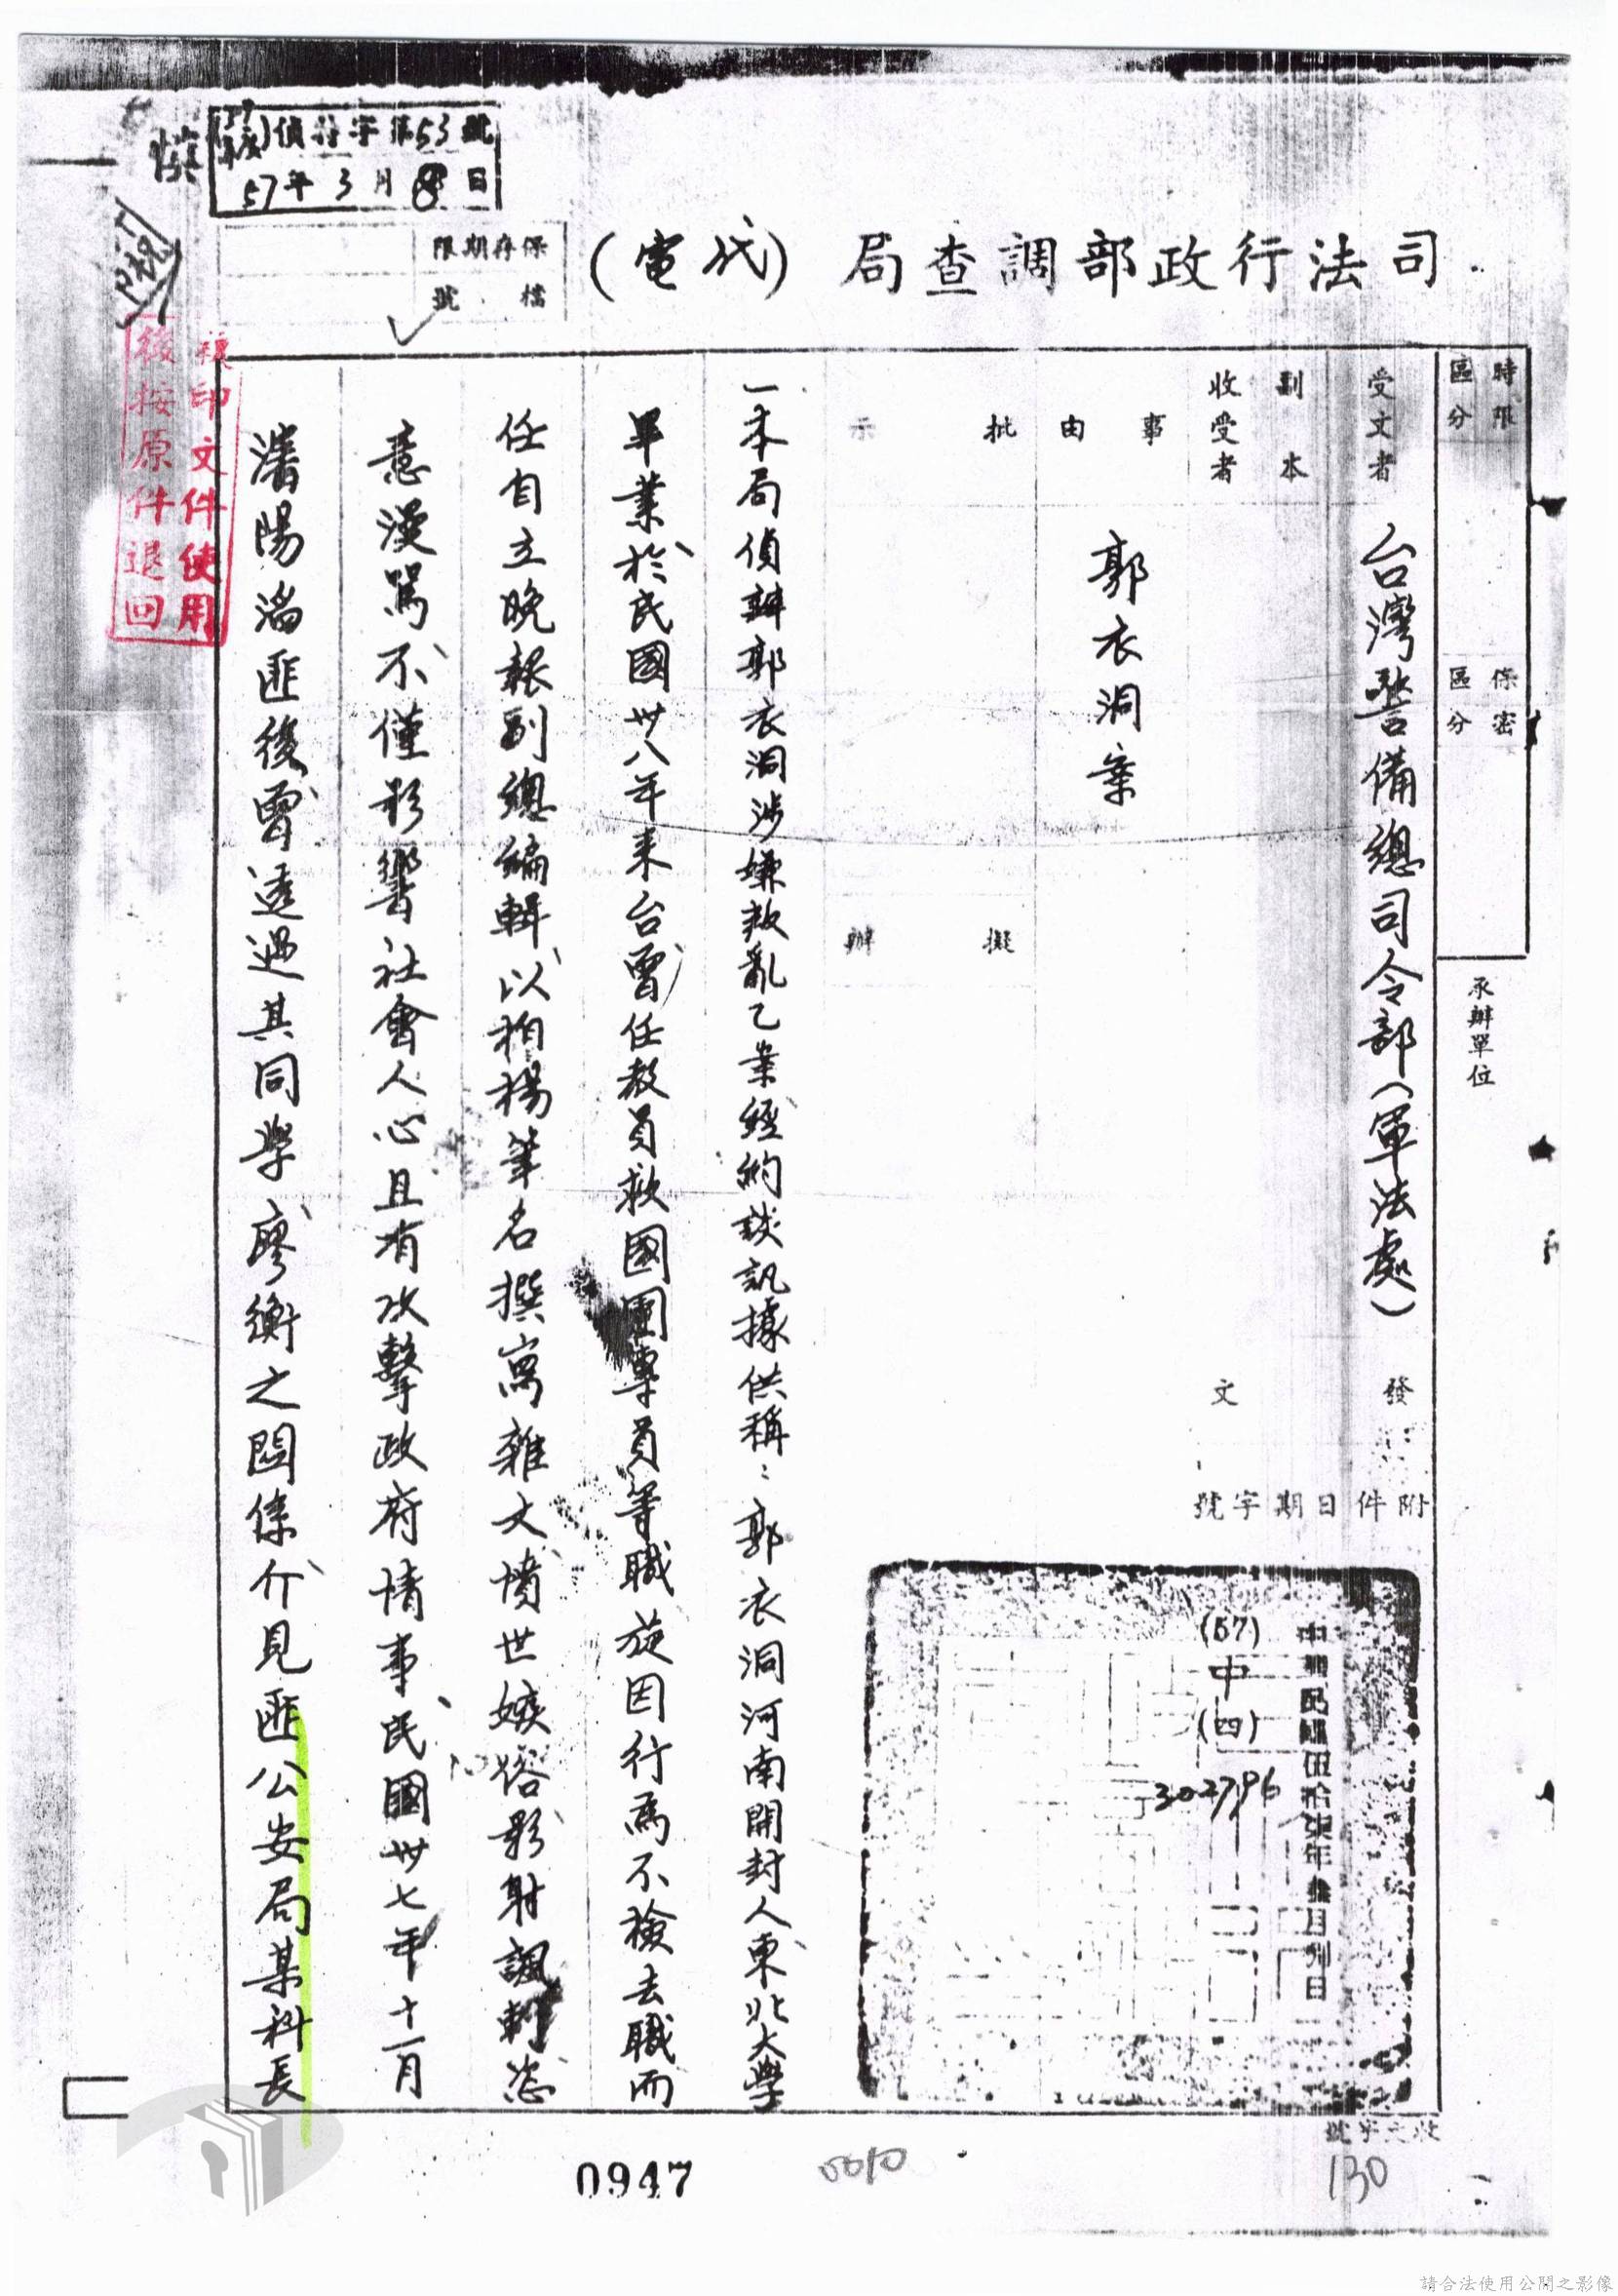 司法行政部調查局(代電)
偵特字第53號
57年3月8日
慎
保存期限
檔號
複印文件使用
後按原件退回
時限
區分
保密
區分
承辦單位
受文者
台灣警備總司令部(軍法處)
副本
收受者
發文
附件日期字號
中華民國伍拾柒年叁月
(57)
中
(四)
302796
事由
郭衣洞案
批示
擬辦
一本局偵辦郭衣洞涉嫌叛亂乙案經約談訊據供稱:郭衣洞河南開封人東北大學
畢業於民國卅八年來台曾任教員救國團專員等職旋因行為不檢去職而
任自立晚報副總編輯以柏楊筆名撰寫雜文憤世嫉俗影射諷刺恣
意漫罵不僅影響社會人心且有攻擊政府情事民國卅七年十一月
瀋陽淪匪後曾透過其同學廖衡之關係介見匪公安局某科長
收文字號
130
0947
0010
請合法使用公開之影像